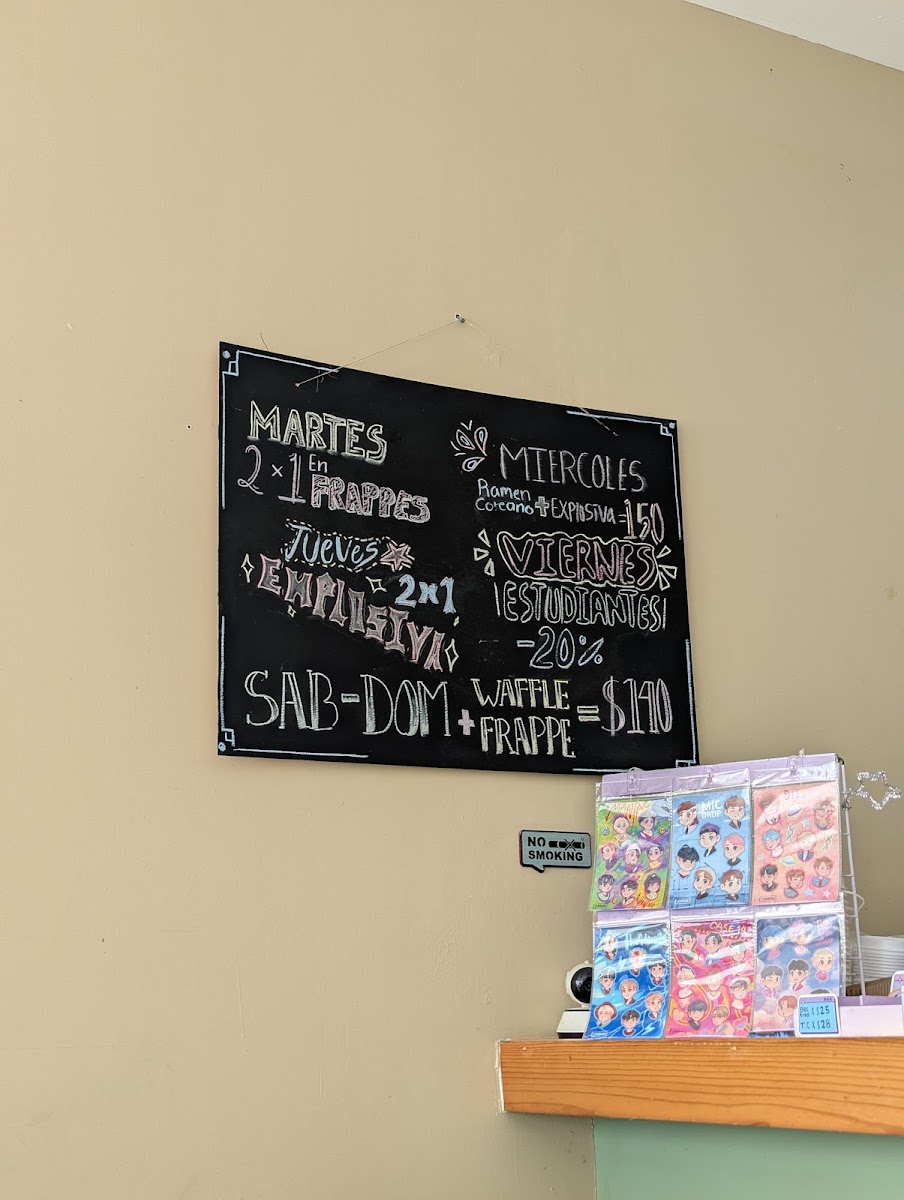 MARTES
2x1 En
FRAPPES
MIERCOLES
Ramen
Coreano + EXPlOSIVA = 150
JUEVES
2x1
EXPLOSIVA
VIERNES
ESTUDIANTES
-20%
SAB-DOM + WAFFLE
FRAPPE = $140
NO
SMOKING
MIC
DROP
$25
$28